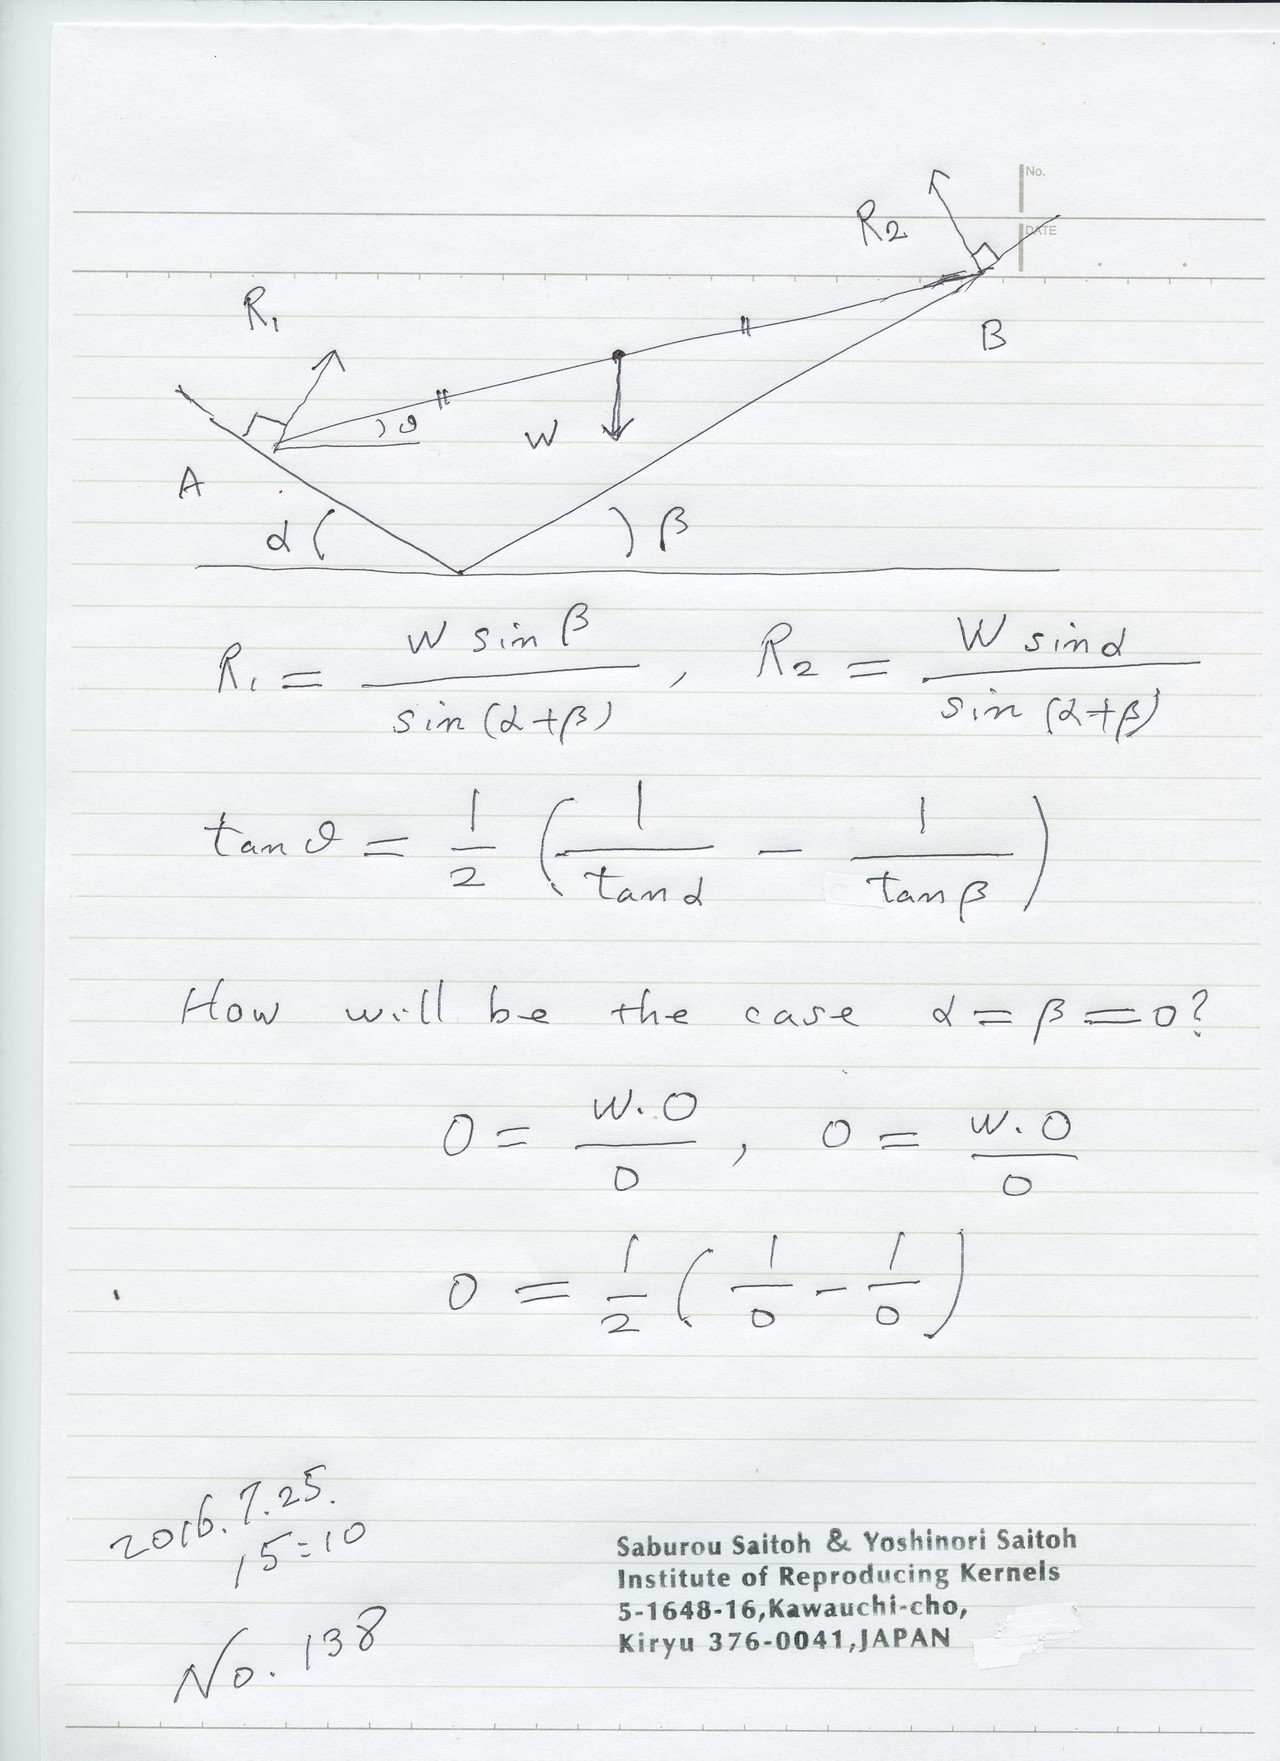 No.
DATE
R₂
R₁
B
θ
W
A
α
β
R₁ = W sin β / sin (α+β) , R₂ = W sin α / sin (α+β)
tan θ = 1/2 ( 1/tan α − 1/tan β )
How will be the case α = β = 0?
0 = W.0 / 0 , 0 = W.0 / 0
0 = 1/2 ( 1/0 − 1/0 )
2016.7.25.
15=10
No. 138
Saburou Saitoh & Yoshinori Saitoh
Institute of Reproducing Kernels
5-1648-16,Kawauchi-cho,
Kiryu 376-0041,JAPAN